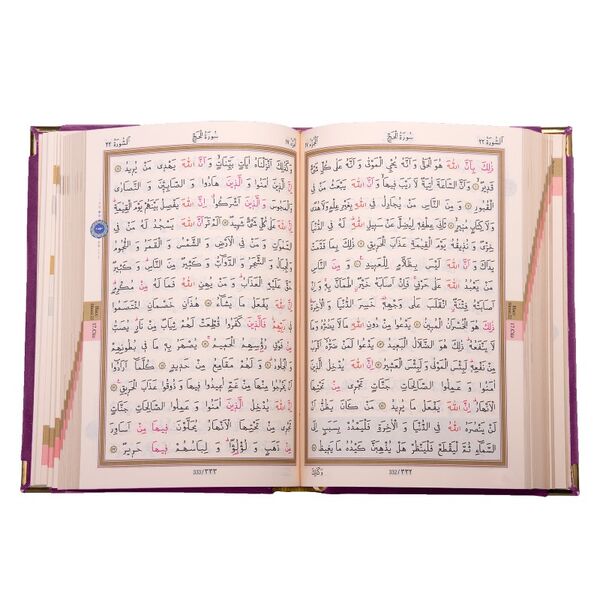 اَلسُّورَةُ ٢٢
سُورَةُ الْحَجِّ
ذٰلِكَ بِاَنَّ اللّٰهَ هُوَ الْحَقُّ وَ اَنَّهُ يُحْيِ الْمَوْتٰى وَ اَنَّهُ عَلٰى كُلِّ شَيْءٍ
قَدِيرٌ ۙ وَ اَنَّ السَّاعَةَ اٰتِيَةٌ لَا رَيْبَ فِيهَا وَ اَنَّ اللّٰهَ يَبْعَثُ مَنْ فِي
الْقُبُورِ وَ مِنَ النَّاسِ مَنْ يُجَادِلُ فِي اللّٰهِ بِغَيْرِ عِلْمٍ وَ لَا هُدًى
وَ لَا كِتَابٍ مُنِيرٍ ثَانِيَ عِطْفِهِ لِيُضِلَّ عَنْ سَبِيلِ اللّٰهِ لَهُ فِي الدُّنْيَا
خِزْيٌ وَ نُذِيقُهُ يَوْمَ الْقِيٰمَةِ عَذَابَ الْحَرِيقِ ذٰلِكَ بِمَا قَدَّمَتْ
يَدَاكَ وَ اَنَّ اللّٰهَ لَيْسَ بِظَلَّامٍ لِلْعَبِيدِ وَ مِنَ النَّاسِ
مَنْ يَعْبُدُ اللّٰهَ عَلٰى حَرْفٍ فَاِنْ اَصَابَهُ خَيْرٌ اطْمَاَنَّ بِهِ وَ اِنْ
اَصَابَتْهُ فِتْنَةٌ انْقَلَبَ عَلٰى وَجْهِهِ خَسِرَ الدُّنْيَا وَ الْاٰخِرَةَ
ذٰلِكَ هُوَ الْخُسْرَانُ الْمُبِينُ يَدْعُوا مِنْ دُونِ اللّٰهِ مَا لَا يَضُرُّهُ وَ مَا
لَا يَنْفَعُهُ ذٰلِكَ هُوَ الضَّلَالُ الْبَعِيدُ يَدْعُوا لَمَنْ ضَرُّهُ اَقْرَبُ
مِنْ نَفْعِهِ لَبِئْسَ الْمَوْلٰى وَ لَبِئْسَ الْعَشِيرُ اِنَّ اللّٰهَ يُدْخِلُ
الَّذِينَ اٰمَنُوا وَ عَمِلُوا الصَّالِحَاتِ جَنَّاتٍ تَجْرِي مِنْ تَحْتِهَا
الْاَنْهَارُ اِنَّ اللّٰهَ يَفْعَلُ مَا يُرِيدُ مَنْ كَانَ يَظُنُّ اَنْ
لَنْ يَنْصُرَهُ اللّٰهُ فِي الدُّنْيَا وَ الْاٰخِرَةِ فَلْيَمْدُدْ بِسَبَبٍ اِلَى
السَّمَاءِ ثُمَّ لْيَقْطَعْ فَلْيَنْظُرْ هَلْ يُذْهِبَنَّ كَيْدُهُ مَا يَغِيظُ
332/٣٣٢
وَ كَذٰلِكَ
سُورَةُ الْحَجِّ
اَلسُّورَةُ ٢٢
وَ كَذٰلِكَ اَنْزَلْنَاهُ اٰيَاتٍ بَيِّنَاتٍ وَ اَنَّ اللّٰهَ يَهْدِي مَنْ يُرِيدُ
اِنَّ الَّذِينَ اٰمَنُوا وَ الَّذِينَ هَادُوا وَ الصَّابِئِينَ وَ النَّصَارٰى
وَ الْمَجُوسَ وَ الَّذِينَ اَشْرَكُوا اِنَّ اللّٰهَ يَفْصِلُ بَيْنَهُمْ يَوْمَ الْقِيٰمَةِ
اِنَّ اللّٰهَ عَلٰى كُلِّ شَيْءٍ شَهِيدٌ اَلَمْ تَرَ اَنَّ اللّٰهَ يَسْجُدُ لَهُ مَنْ فِي
السَّمٰوَاتِ وَ مَنْ فِي الْاَرْضِ وَ الشَّمْسُ وَ الْقَمَرُ وَ النُّجُومُ
وَ الْجِبَالُ وَ الشَّجَرُ وَ الدَّوَابُّ وَ كَثِيرٌ مِنَ النَّاسِ وَ كَثِيرٌ
حَقَّ عَلَيْهِ الْعَذَابُ وَ مَنْ يُهِنِ اللّٰهُ فَمَا لَهُ مِنْ مُكْرِمٍ
اِنَّ اللّٰهَ يَفْعَلُ مَا يَشَاءُ هٰذَانِ خَصْمَانِ اخْتَصَمُوا
فِي رَبِّهِمْ فَالَّذِينَ كَفَرُوا قُطِّعَتْ لَهُمْ ثِيَابٌ مِنْ نَارٍ يُصَبُّ
مِنْ فَوْقِ رُؤُسِهِمُ الْحَمِيمُ يُصْهَرُ بِهِ مَا فِي بُطُونِهِمْ
وَ الْجُلُودُ وَ لَهُمْ مَقَامِعُ مِنْ حَدِيدٍ كُلَّمَا اَرَادُوا
اَنْ يَخْرُجُوا مِنْهَا مِنْ غَمٍّ اُعِيدُوا فِيهَا وَ ذُوقُوا عَذَابَ الْحَرِيقِ
اِنَّ اللّٰهَ يُدْخِلُ الَّذِينَ اٰمَنُوا وَ عَمِلُوا الصَّالِحَاتِ جَنَّاتٍ
تَجْرِي مِنْ تَحْتِهَا الْاَنْهَارُ يُحَلَّوْنَ فِيهَا مِنْ اَسَاوِرَ
مِنْ ذَهَبٍ وَ لُؤْلُؤًا وَ لِبَاسُهُمْ فِيهَا حَرِيرٌ
333/٣٣٣